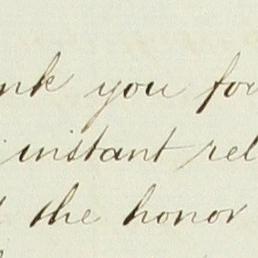 nk you for
instant rel
the honor